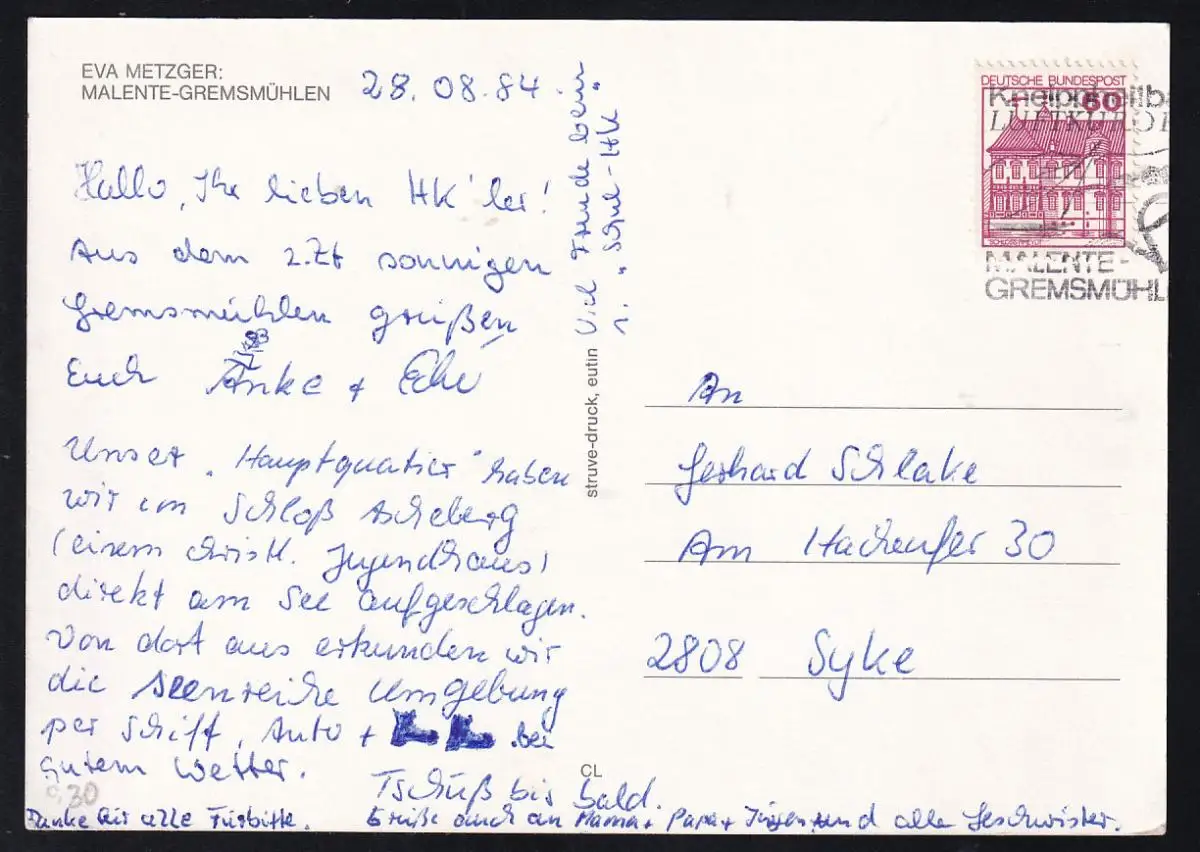 EVA METZGER:
MALENTE-GREMSMÜHLEN
28.08.84
Hallo, Ihr lieben HK'ler!
Aus dem z.Zt sonnigen
Gremsmühlen grüßen
Euch Anke +
Unser "Hauptquatier" haben
wir im Schloß Ascheberg
(einem christl. Jugendhaus)
direkt am See aufgeschlagen.
Von dort aus erkunden wir
die seenreiche Umgebung
per Schiff, Auto + bei
gutem Wetter.
Tschüß bis bald.
Danke für alle Fürbitte.
Grüße auch an Mama + Papa + Jürgen und alle Geschwister.
Viel Freude beim
1. "Schul-HK"
struve-druck, eutin
CL
DEUTSCHE BUNDESPOST
60
Kneippheilba
LUFTKURO
MALENTE-
GREMSMÜHL
An
Gerhard Schlake
Am Hachufer 30
2808 Syke
30